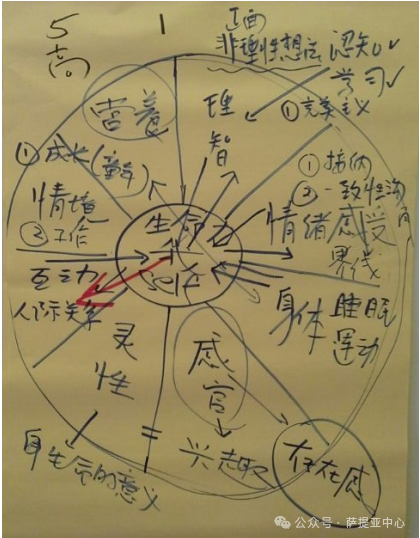 5
高
1
正面
非理性想法
认知✓
学习✓
①完美主义
营养
理
智
①成长(童年)
①接纳
②一致性沟
情境
②工作
生命力
情绪感受
界线
互动
人际关系
身体
睡眠
运动
灵
性
感
官
=
身生命的意义
兴趣
存在感
公众号·萨提亚中心